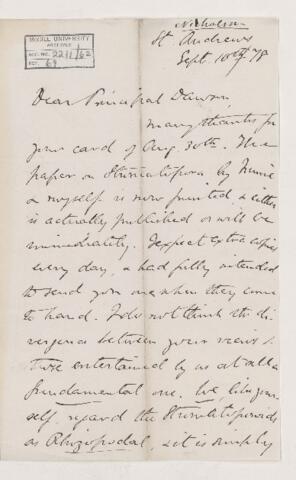 Nicholson
McGILL UNIVERSITY
ARCHIVES
ACC. NO. 2211/62
REF. 69
St. Andrews
Sept. 10th/78
Dear Principal Dawson,
many thanks for
your card of Aug. 30th. The
paper on Stromatopora by Murie
& myself is now printed, & either
is actually published or will be
immediately. I expect extra copies
every day, & had fully intended
to send you one when they come
to hand. I do not think the di-
vergence between your views &
those entertained by us at all a
fundamental one. We, like your-
self, regard the Stromatoporoids
as Rhizopodal, & it is simply